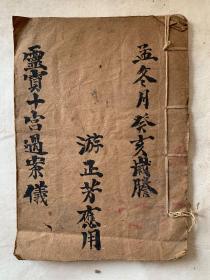 孟冬月癸亥歲謄
游正芳應用
靈寶十宮過案儀